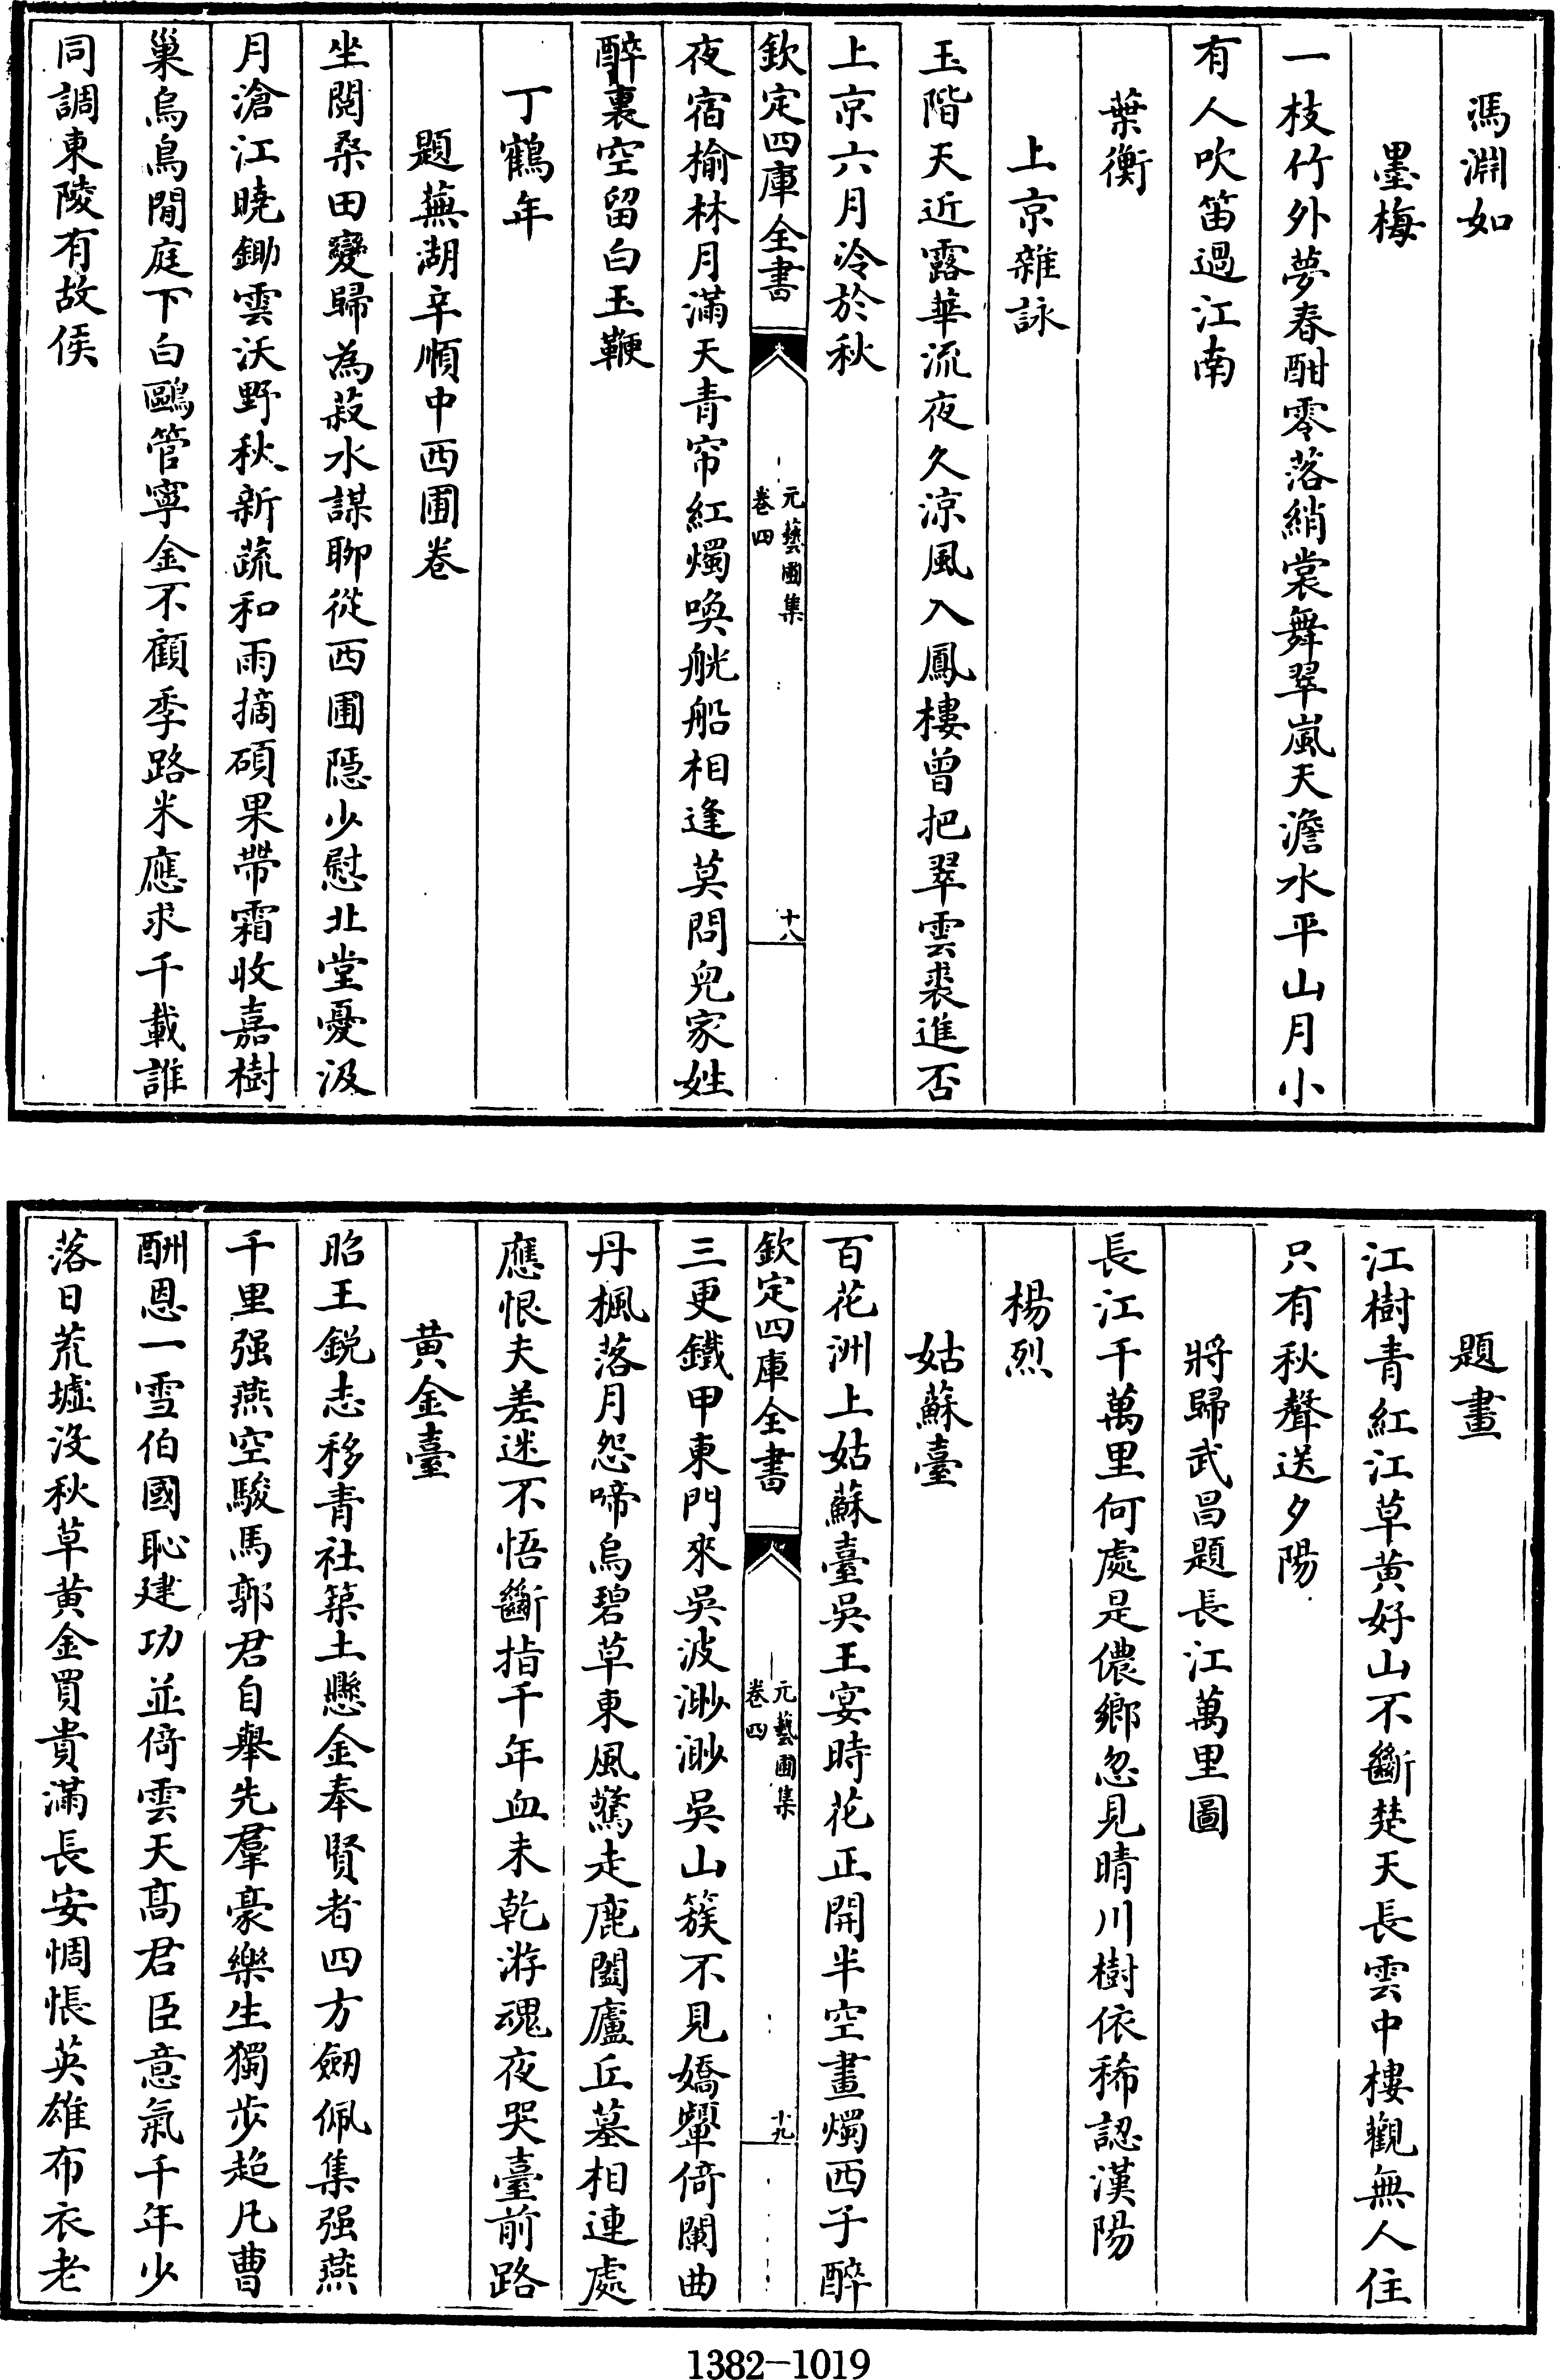 馮淵如
墨梅
一枝竹外夢春酣零落綃裳舞翠嵐天澹水平山月小
有人吹笛過江南
葉衡
上京雜詠
玉階天近露華流夜久涼風入鳳樓曾把翠雲裘進否
上京六月冷於秋
欽定四庫全書
元藝圃集
卷四
十八
夜宿榆林月滿天青帘紅燭喚觥船相逢莫問兒家姓
醉裏空留白玉鞭
丁鶴年
題蕪湖辛順中西圃卷
坐閱桑田變歸為菽水謀聊從西圃隱少慰北堂憂汲
月滄江曉鋤雲沃野秋新蔬和雨摘碩果帶霜收嘉樹
巢烏鳥閒庭下白鷗管寧金不顧季路米應求千載誰
同調東陵有故侯
題畫
江樹青紅江草黃好山不斷楚天長雲中樓觀無人住
只有秋聲送夕陽
將歸武昌題長江萬里圖
長江千萬里何處是儂鄉忽見晴川樹依稀認漢陽
楊烈
姑蘇臺
百花洲上姑蘇臺吳王宴時花正開半空畫燭西子醉
欽定四庫全書
元藝圃集
卷四
十九
三更鐵甲東門來吳波渺渺吳山簇不見嬌顰倚闌曲
丹楓落月怨啼烏碧草東風驚走鹿闔廬丘墓相連處
應恨夫差迷不悟斷指千年血未乾游魂夜哭臺前路
黃金臺
昭王銳志移青社築土懸金奉賢者四方劒佩集强燕
千里强燕空駿馬郭君自舉先羣豪樂生獨步超凡曹
酬恩一雪伯國恥建功並倚雲天高君臣意氣千年少
落日荒墟沒秋草黃金買貴滿長安惆悵英雄布衣老
1382-1019